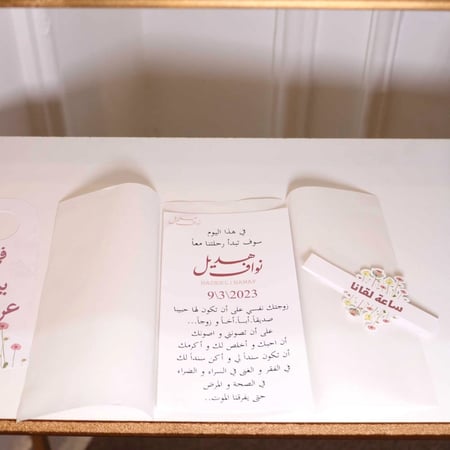 في هذا اليوم
سوف تبدأ رحلتنا معاً
هديل
نواف
HADEEL | NAWAF
9\3\2023
زوجتك نفسي على أن تكون لها حبيبا
صديقا..أبا..أخا و زوجا...
على أن تصونني و اصونك
أن احبك و أخلص لك و أكرمك
أن تكون سنداً لي و أكن سنداً لك
في الفقر و الغنى في السراء و الضراء
في الصحة و المرض
حتى يفرقنا الموت..
ساعة لقانا